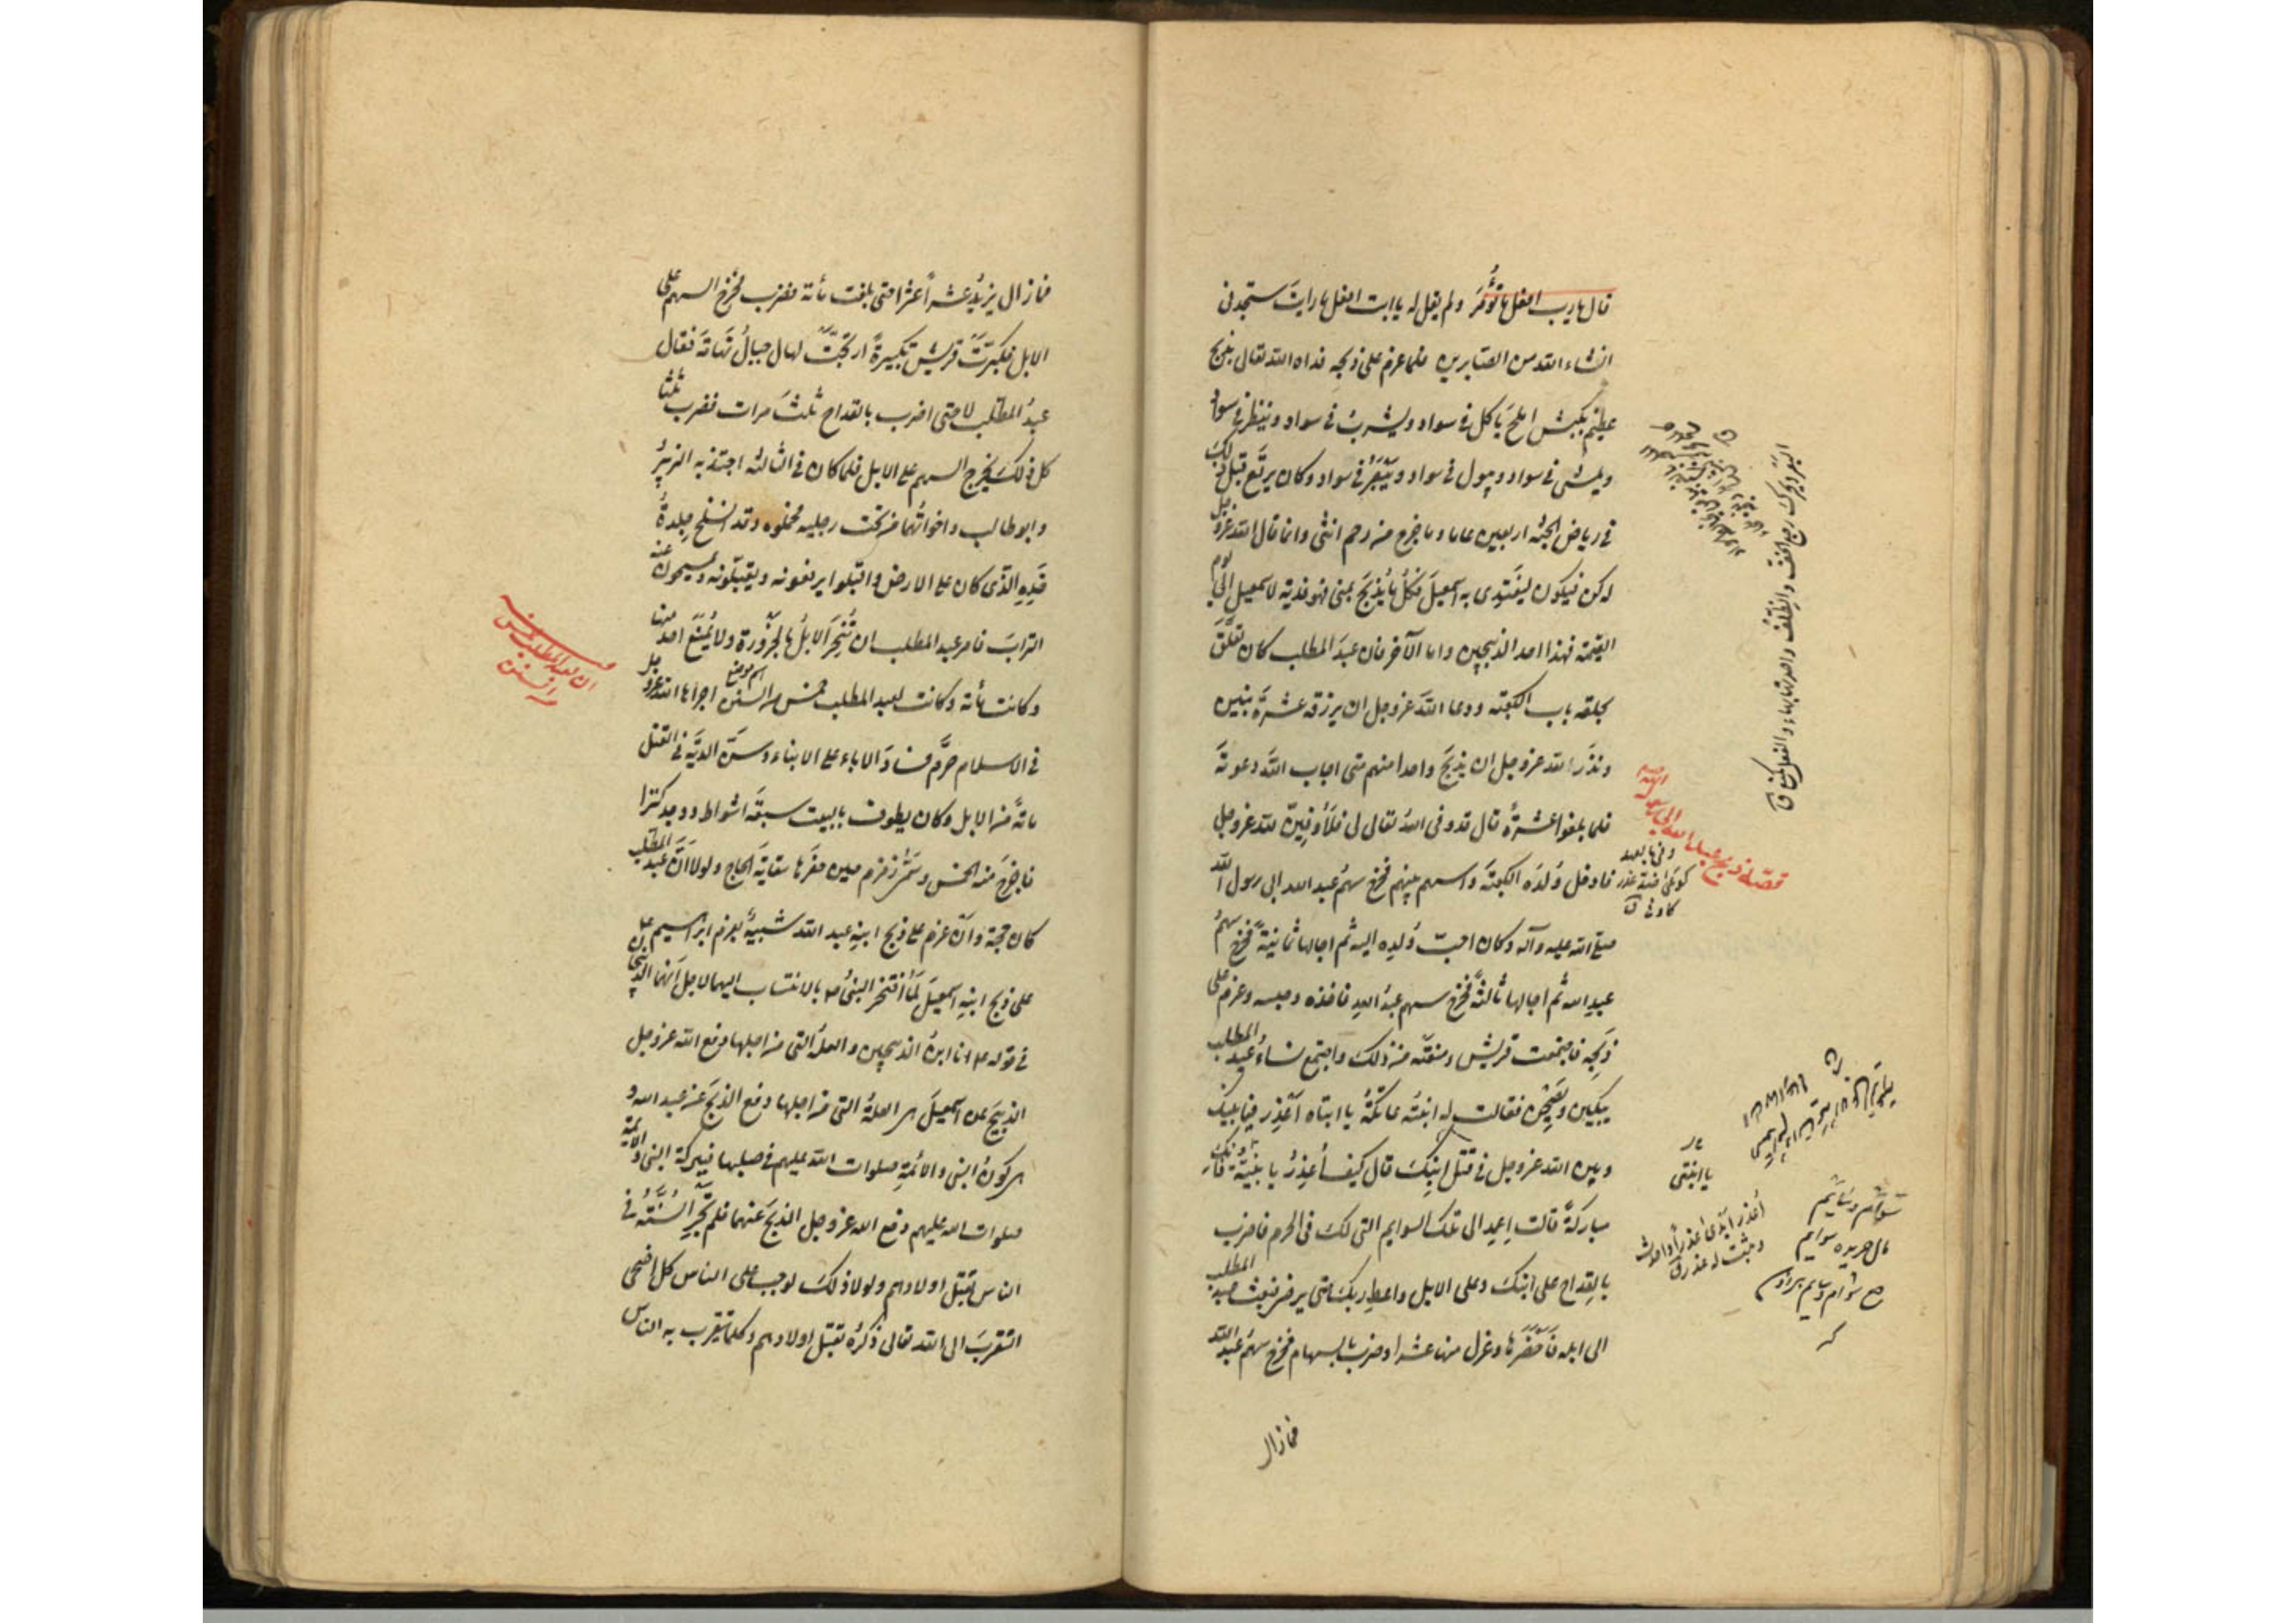 قال يا ابت افعل ما تؤمر ولم يقل له يا ابت افعل ما رايت ستجدنى
انشاء الله من الصابرين فلما عزم على ذبحه فداه الله تعالى بذبح
عظيم بكبش املح ياكل فى سواد ويشرب فى سواد وينظر فى سواد
ويمشى فى سواد ويبول فى سواد ويبعر فى سواد وكان يرتع قبل ذلك
فى رياض الجنة اربعين عاما وما خرج من رحم انثى وانما قال الله عز وجل
له كن فيكون ليفتدى به اسمعيل فكل ما يذبح بمنى فهو فدية لاسمعيل الى يوم
القيمة فهذا احد الذبيحين واما الآخر فان عبد المطلب كان تعلق
بحلقة باب الكعبة ودعا الله عز وجل ان يرزقه عشرة بنين
ونذر لله عز وجل ان يذبح واحدا منهم متى اجاب الله دعوته
فلما بلغوا عشرة قال قد وفى الله تعالى لى فلاوفين لله عز وجل
فادخل ولده الكعبة واسهم بينهم فخرج سهم عبد الله ابى رسول الله
صلى الله عليه وآله وكان احب ولده اليه ثم اجالها ثانية فخرج سهم
عبد الله ثم اجالها ثالثة فخرج سهم عبد الله فاخذه وحبسه وعزم على
ذبحه فاجتمعت قريش ومنعته من ذلك واجتمع نساء عبد المطلب
يبكين ويصحن فقالت له ابنته عاتكة يا ابتاه اعذر فيما بينك
وبين الله عز وجل فى قتل ابنك قال كيف اعذر يا بنية فانك
مباركة قالت اعمد الى تلك السوايم التى لك فى الحرم فاضرب
بالقداح على ابنك وعلى الابل واعط ربك حتى يرضى فبعث عبد المطلب
الى ابله فاحضرها وعزل منها عشرا وضرب بالسهام فخرج سهم عبد الله
فما زال
قصة ذبح عبد الله
يا ابنتى
فما زال يزيد عشرا عشرا حتى بلغت مأة فضرب فخرج السهم على
الابل فكبرت قريش تكبيرة ارتجت لها جبال تهامة فقال
عبد المطلب لا حتى اضرب بالقداح ثلث مرات فضرب ثلثا
كل ذلك يخرج السهم على الابل فلما كان فى الثالثة اجتذبه الزبير
وابو طالب واخواتهما من تحت رجليه فحملوه وقد انسلخ جلدة
خده الذى كان على الارض واقبلوا يرفعونه ويقبلونه ويمسحون عنه
التراب فامر عبد المطلب ان تنحر الابل بالحزورة ولا يمنع احد منها
وكانت مأة وكانت لعبد المطلب خمس من السنن اجراها الله عز وجل
فى الاسلام حرم نساء الاباء على الابناء وسن الدية فى القتل
مائة من الابل وكان يطوف بالبيت سبعة اشواط ووجد كنزا
فاخرج منه الخمس وسمى زمزم حين حفرها سقاية الحاج ولولا ان عبد المطلب
كان حجة وان عزمه على ذبح ابنه عبد الله شبيه بعزم ابراهيم
على ذبح ابنه اسمعيل لما افتخر النبى ص بالانتساب اليهما لاجل انهما الذبيحان
فى قوله ع انا ابن الذبيحين والعلة التى من اجلها دفع الله عز وجل
الذبح عن اسمعيل هى العلة التى من اجلها دفع الذبح عن عبد الله و
هى كون النبى والائمة صلوات الله عليهم فى صلبهما فببركة النبى والائمة
صلوات الله عليهم دفع الله عز وجل الذبح عنهما فلم تجر السنة فى
الناس بقتل اولادهم ولولا ذلك لوجب على الناس كل اضحى
التقرب الى الله تعالى ذكره بقتل اولادهم وكلما تقرب به الناس